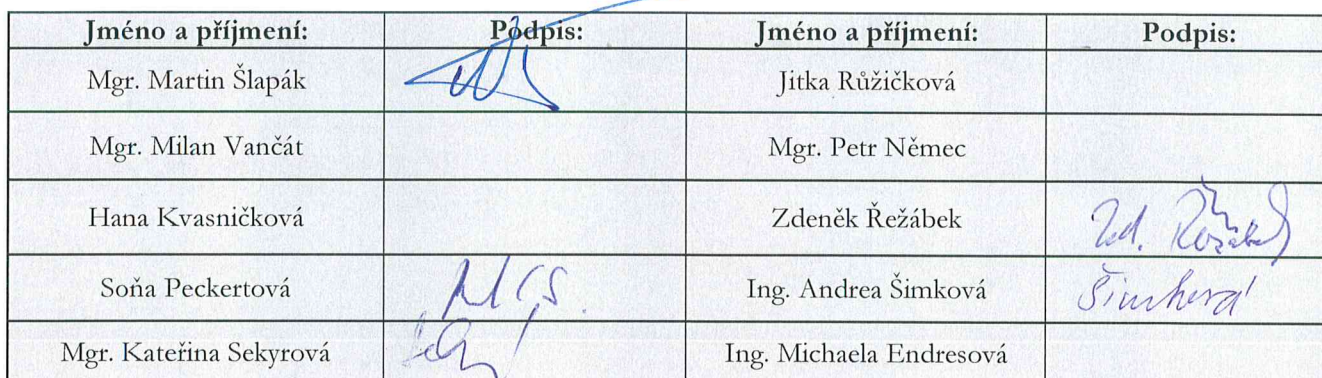 Jméno a příjmení: Podpis: Jméno a příjmení: Podpis:
Mgr. Martin Šlapák Jitka Růžičková
Mgr. Milan Vančát Mgr. Petr Němec
Hana Kvasničková Zdeněk Řežábek Zd. Řežábek
Soňa Peckertová Ing. Andrea Šimková Šimková
Mgr. Kateřina Sekyrová Ing. Michaela Endresová